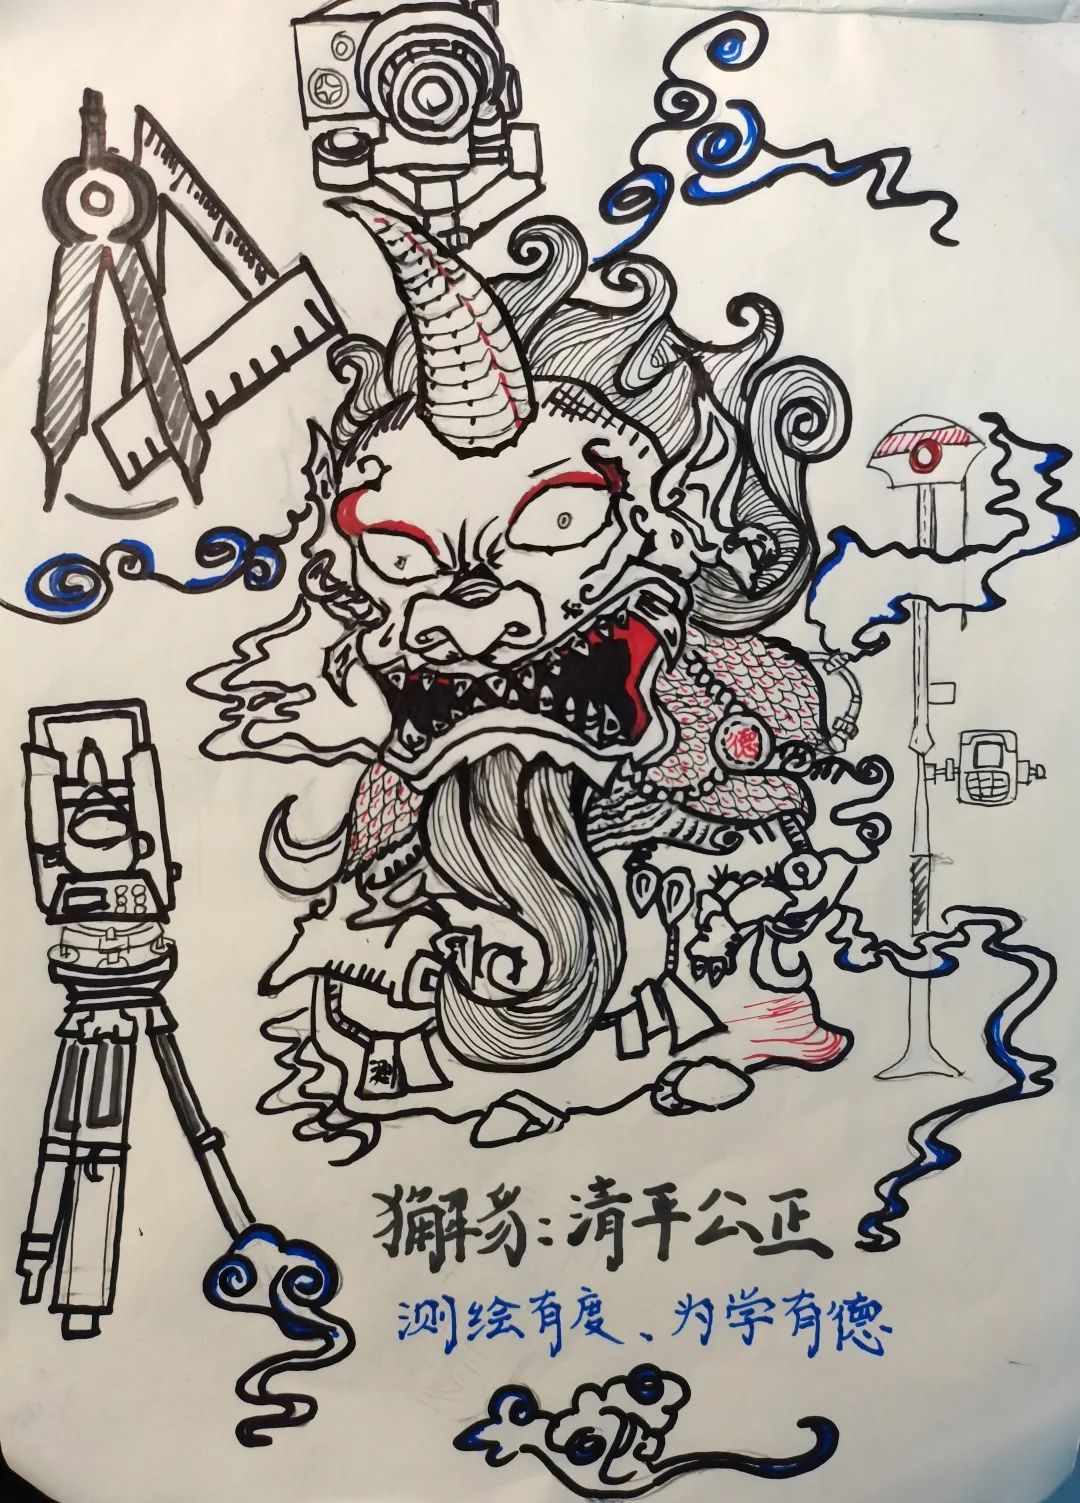 德
獬豸：清平公正
测绘有度、为学有德